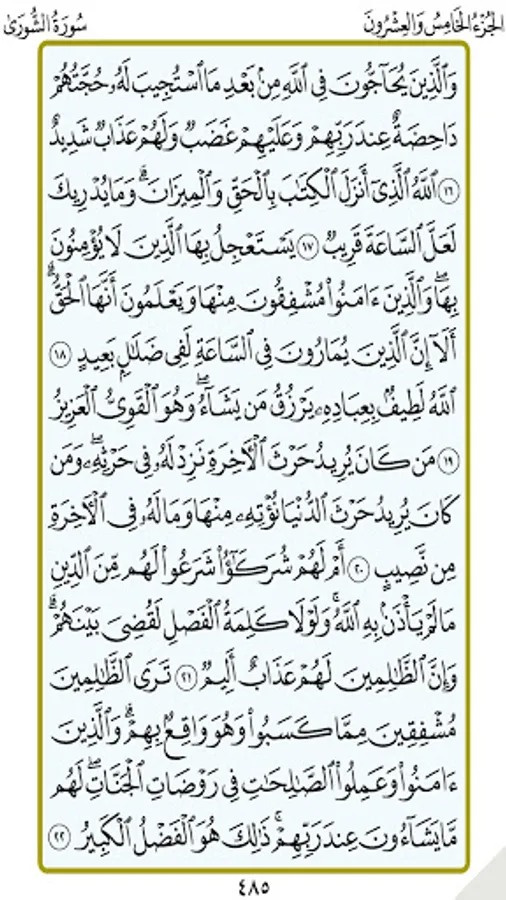 الجزء الخامس والعشرون
سورة الشورى
وَٱلَّذِينَ يُحَآجُّونَ فِى ٱللَّهِ مِنۢ بَعْدِ مَا ٱسْتُجِيبَ لَهُۥ حُجَّتُهُمْ
دَاحِضَةٌ عِندَ رَبِّهِمْ وَعَلَيْهِمْ غَضَبٌ وَلَهُمْ عَذَابٌ شَدِيدٌ
١٦ ٱللَّهُ ٱلَّذِىٓ أَنزَلَ ٱلْكِتَٰبَ بِٱلْحَقِّ وَٱلْمِيزَانَ ۗ وَمَا يُدْرِيكَ
لَعَلَّ ٱلسَّاعَةَ قَرِيبٌ ١٧ يَسْتَعْجِلُ بِهَا ٱلَّذِينَ لَا يُؤْمِنُونَ
بِهَا ۖ وَٱلَّذِينَ ءَامَنُوا۟ مُشْفِقُونَ مِنْهَا وَيَعْلَمُونَ أَنَّهَا ٱلْحَقُّ ۗ
أَلَآ إِنَّ ٱلَّذِينَ يُمَارُونَ فِى ٱلسَّاعَةِ لَفِى ضَلَٰلٍۭ بَعِيدٍ ١٨
ٱللَّهُ لَطِيفٌۢ بِعِبَادِهِۦ يَرْزُقُ مَن يَشَآءُ ۖ وَهُوَ ٱلْقَوِىُّ ٱلْعَزِيزُ
١٩ مَن كَانَ يُرِيدُ حَرْثَ ٱلْـَٔاخِرَةِ نَزِدْ لَهُۥ فِى حَرْثِهِۦ ۖ وَمَن
كَانَ يُرِيدُ حَرْثَ ٱلدُّنْيَا نُؤْتِهِۦ مِنْهَا وَمَا لَهُۥ فِى ٱلْـَٔاخِرَةِ
مِن نَّصِيبٍ ٢٠ أَمْ لَهُمْ شُرَكَٰٓؤُا۟ شَرَعُوا۟ لَهُم مِّنَ ٱلدِّينِ
مَا لَمْ يَأْذَنۢ بِهِ ٱللَّهُ ۚ وَلَوْلَا كَلِمَةُ ٱلْفَصْلِ لَقُضِىَ بَيْنَهُمْ ۗ
وَإِنَّ ٱلظَّٰلِمِينَ لَهُمْ عَذَابٌ أَلِيمٌ ٢١ تَرَى ٱلظَّٰلِمِينَ
مُشْفِقِينَ مِمَّا كَسَبُوا۟ وَهُوَ وَاقِعٌۢ بِهِمْ ۗ وَٱلَّذِينَ
ءَامَنُوا۟ وَعَمِلُوا۟ ٱلصَّٰلِحَٰتِ فِى رَوْضَاتِ ٱلْجَنَّاتِ ۖ لَهُم
مَّا يَشَآءُونَ عِندَ رَبِّهِمْ ۚ ذَٰلِكَ هُوَ ٱلْفَضْلُ ٱلْكَبِيرُ ٢٢
٤٨٥